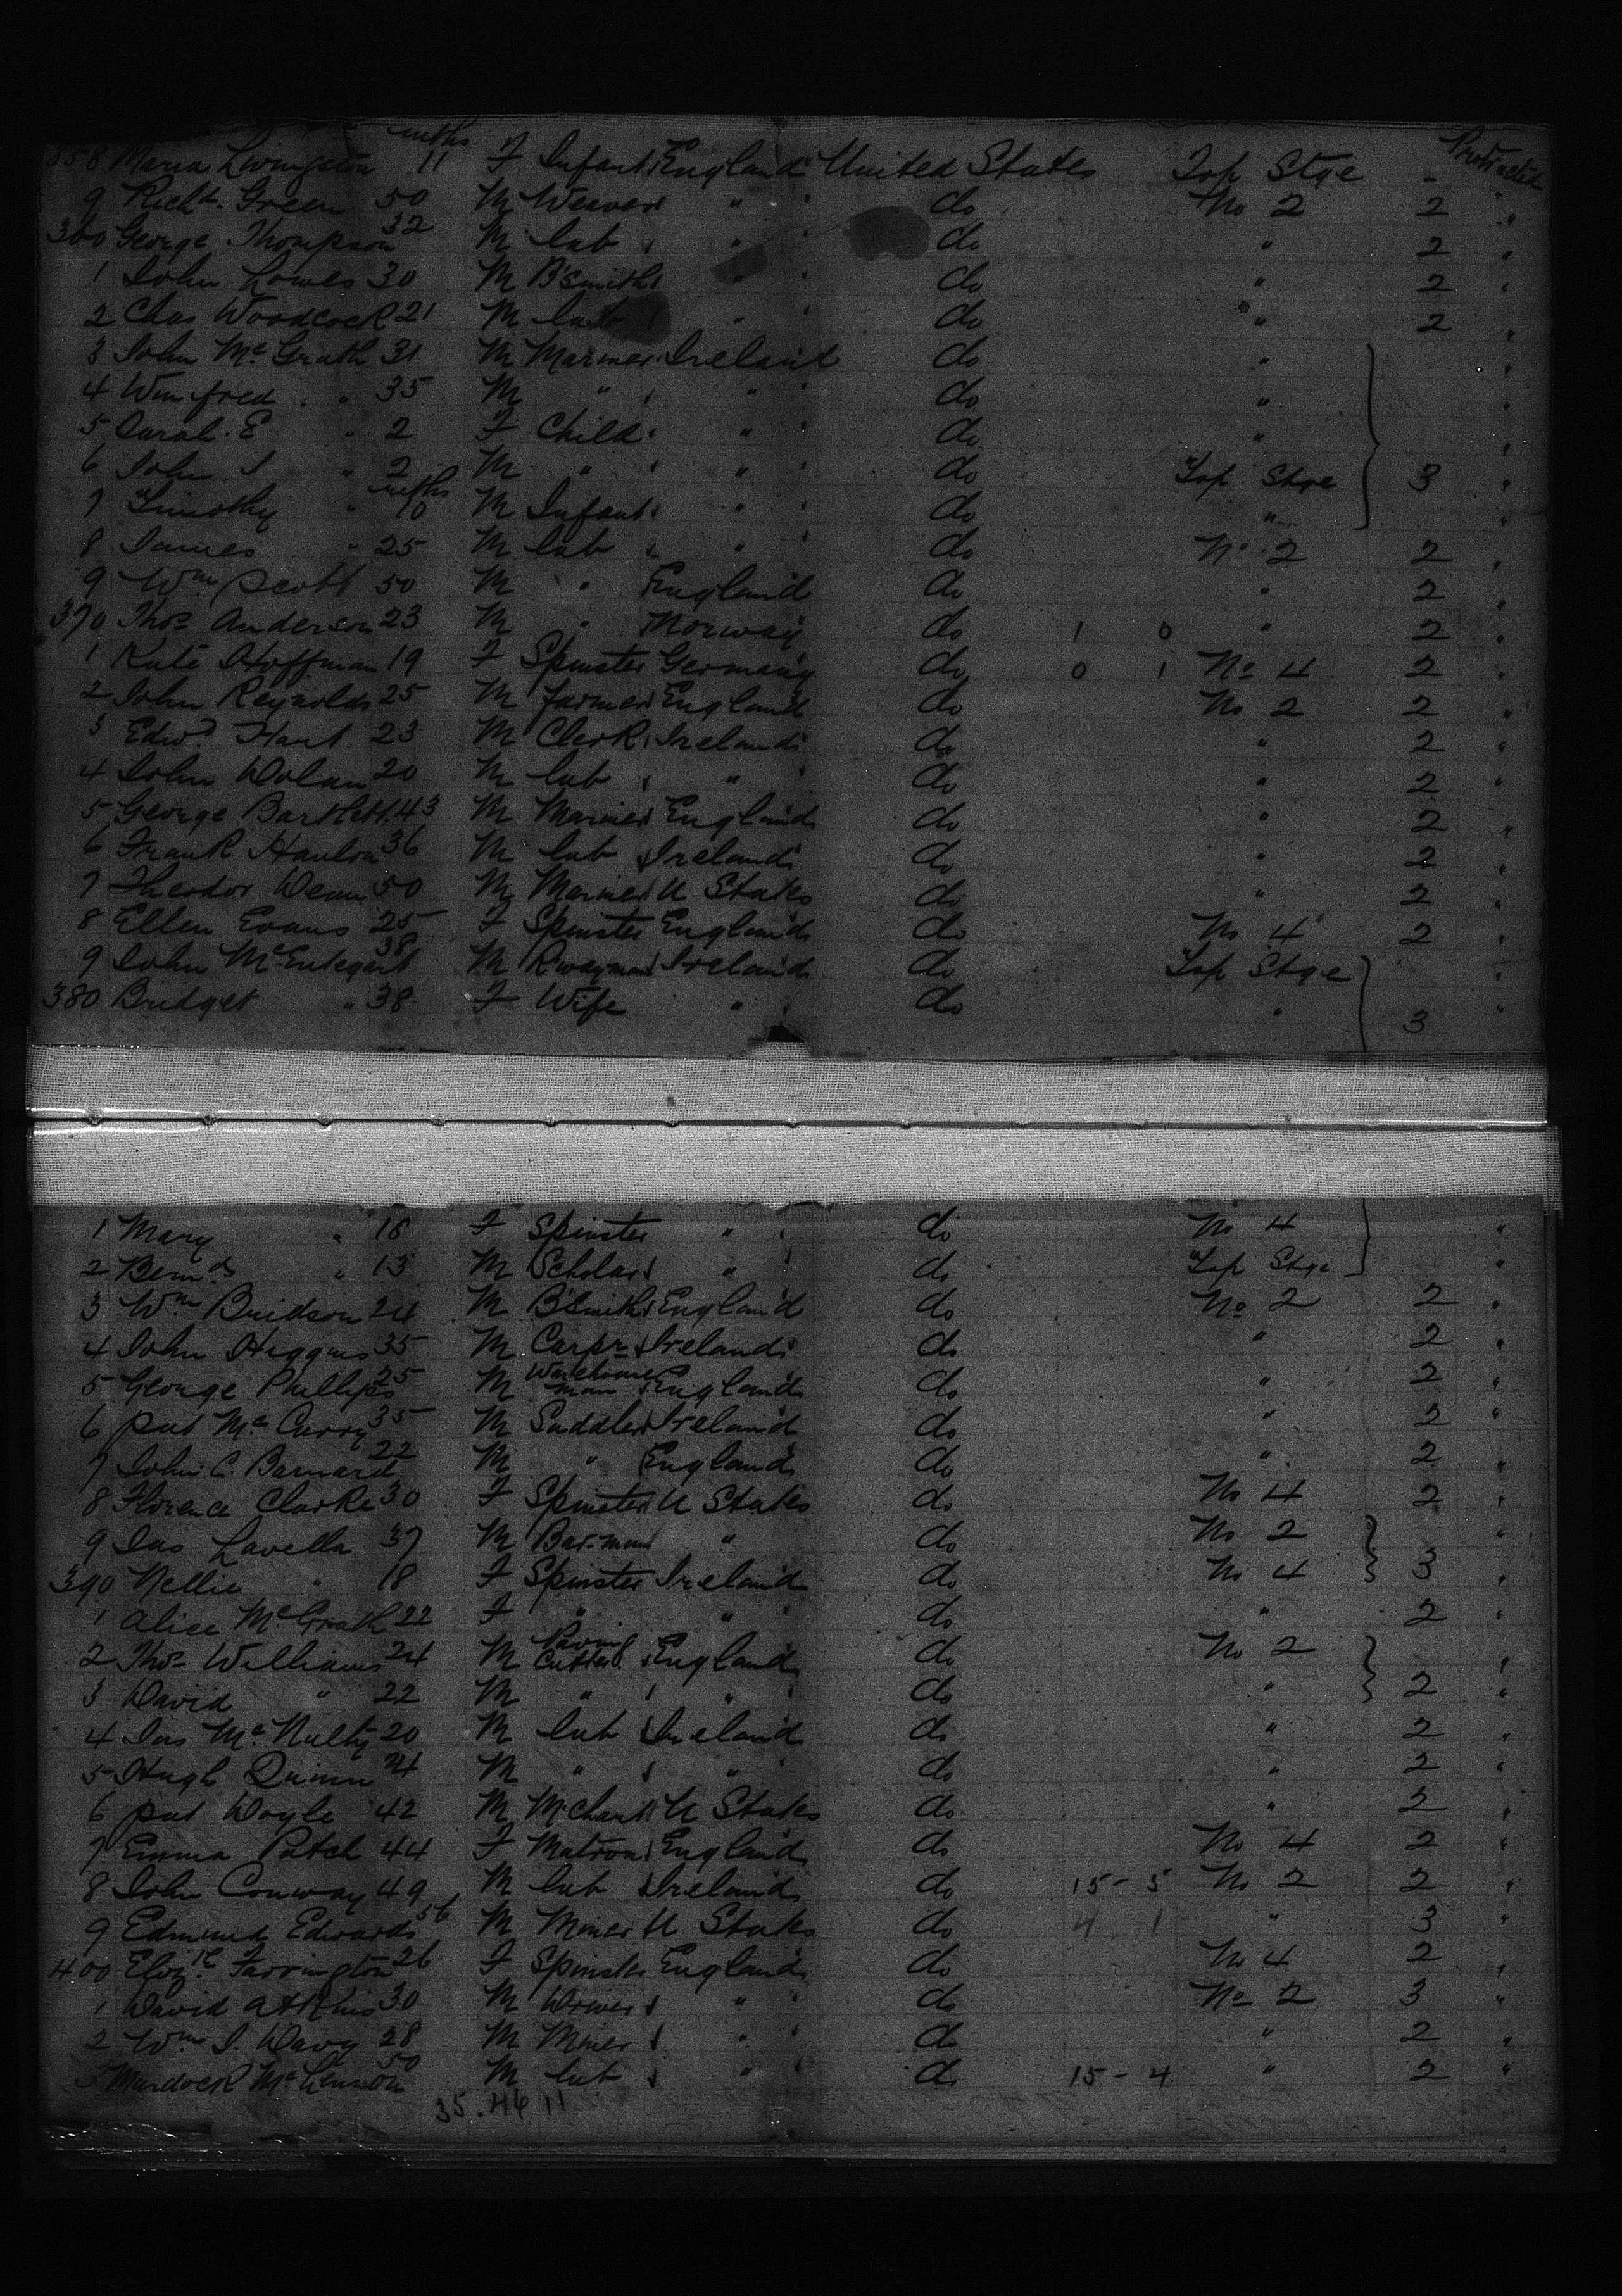 358 Maria Livingston mths 11 F Infant England United States Top Stge - Protracted
9 Richd. Green 50 M Weaver " do No 2 2 "
360 George Thompson 32 M lab " do " 2 "
1 John Lowes 30 M B'smith " do " 2 "
2 Chas Woodcock 21 M lab " do " 2 "
3 John McGrath 31 M Mariner Ireland do " "
4 Winfred " 35 M " " do " "
5 Sarah. E " 2 F Child " do " "
6 John J " 2 M " " do Top Stge 3 "
7 Timothy " mths 10 M Infant " do " "
8 James " 25 M lab " do No 2 2 "
9 Wm Scott 50 M " England do " 2 "
370 Thos Anderson 23 M " Norway do 1 0 " 2 "
1 Kate Hoffman 19 F Spinster Germany do 0 1 No 4 2 "
2 John Reynolds 25 M farmer England do No 2 2 "
3 Edwd Hart 23 M Clerk Ireland do " 2 "
4 John Dolan 20 M lab " do " 2 "
5 George Bartlett 43 M Mariner England do " 2 "
6 Frank Hanlon 36 M lab Ireland do " 2 "
7 Theodor Dean 50 M Mariner U States do " 2 "
8 Ellen Evans 25 F Spinster England do No 4 2 "
9 John McEntegart 38 M Rwayman Ireland do Top Stge "
380 Bridget " 38 F Wife " do " 3 "
1 Mary " 16 F Spinster " do No 4 "
2 Bernd " 13 M Scholar " do Top Stge "
3 Wm Bridson 24 M B'Smith England do No 2 2 "
4 John Higgins 35 M Carpr Ireland do " 2 "
5 George Phillips 25 M Warehouse man England do " 2 "
6 Pat McCurry 35 M Saddler Ireland do " 2 "
7 John C. Barnard 22 M " England do " 2 "
8 Florence Clarke 30 F Spinster U States do No 4 2 "
9 Jas Lavella 37 M Bar-man " do No 2 "
390 Nellie " 18 F Spinster Ireland do No 4 3 "
1 Alice McGrath 22 F " " do " 2 "
2 Thos Williams 24 M Paving Cutter England do No 2 "
3 David " 22 M " " do " 2 "
4 Jas McNulty 20 M lab Ireland do " 2 "
5 Hugh Quinn 24 M " " do " 2 "
6 Pat Doyle 42 M M'Chant U States do " 2 "
7 Emma Patch 44 F Matron England do No 4 2 "
8 John Conway 49 M lab Ireland do 15-5 No 2 2 "
9 Edmund Edwards 56 M Miner U States do 4 1 " 3 "
400 Elizth Farrington 26 F Spinster England do No 4 2 "
1 David Atkins 30 M Driver " do No 2 3 "
2 Wm J. Davy 28 M Miner " do " 2 "
3 Murdock McLennon 50 M lab " do 15-4 " 2 "
35.46 11